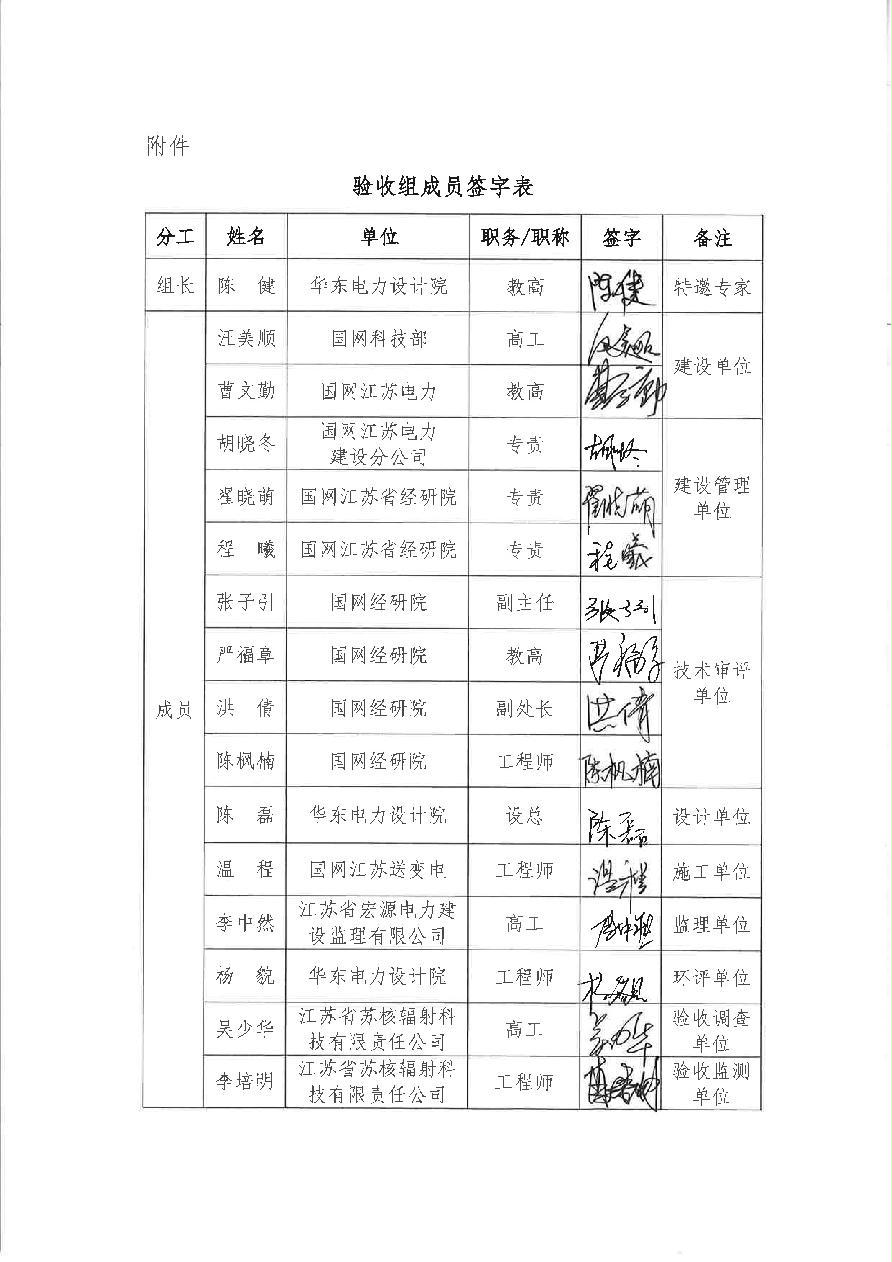 附件
验收组成员签字表
分工 姓名 单位 职务/职称 签字 备注
组长 陈 健 华东电力设计院 教高 陈健 特邀专家
汪美顺 国网科技部 高工
建设单位
曹文勤 国网江苏电力 教高
国网江苏电力
胡晓冬 专责
建设分公司
建设管理
翟晓萌 国网江苏省经研院 专责 翟晓萌
单位
程 曦 国网江苏省经研院 专责 程曦
张子引 国网经研院 副主任 张子引
严福章 国网经研院 教高 严福章
技术审评
单位
成员 洪 倩 国网经研院 副处长 洪倩
陈枫楠 国网经研院 工程师 陈枫楠
陈 磊 华东电力设计院 设总 陈磊 设计单位
温 程 国网江苏送变电 工程师 温程 施工单位
江苏省宏源电力建
李中然 高工 监理单位
设监理有限公司
杨 貌 华东电力设计院 工程师 杨貌 环评单位
江苏省苏核辐射科 验收调查
吴少华 高工 吴少华
技有限责任公司 单位
江苏省苏核辐射科 验收监测
李培明 工程师
技有限责任公司 单位